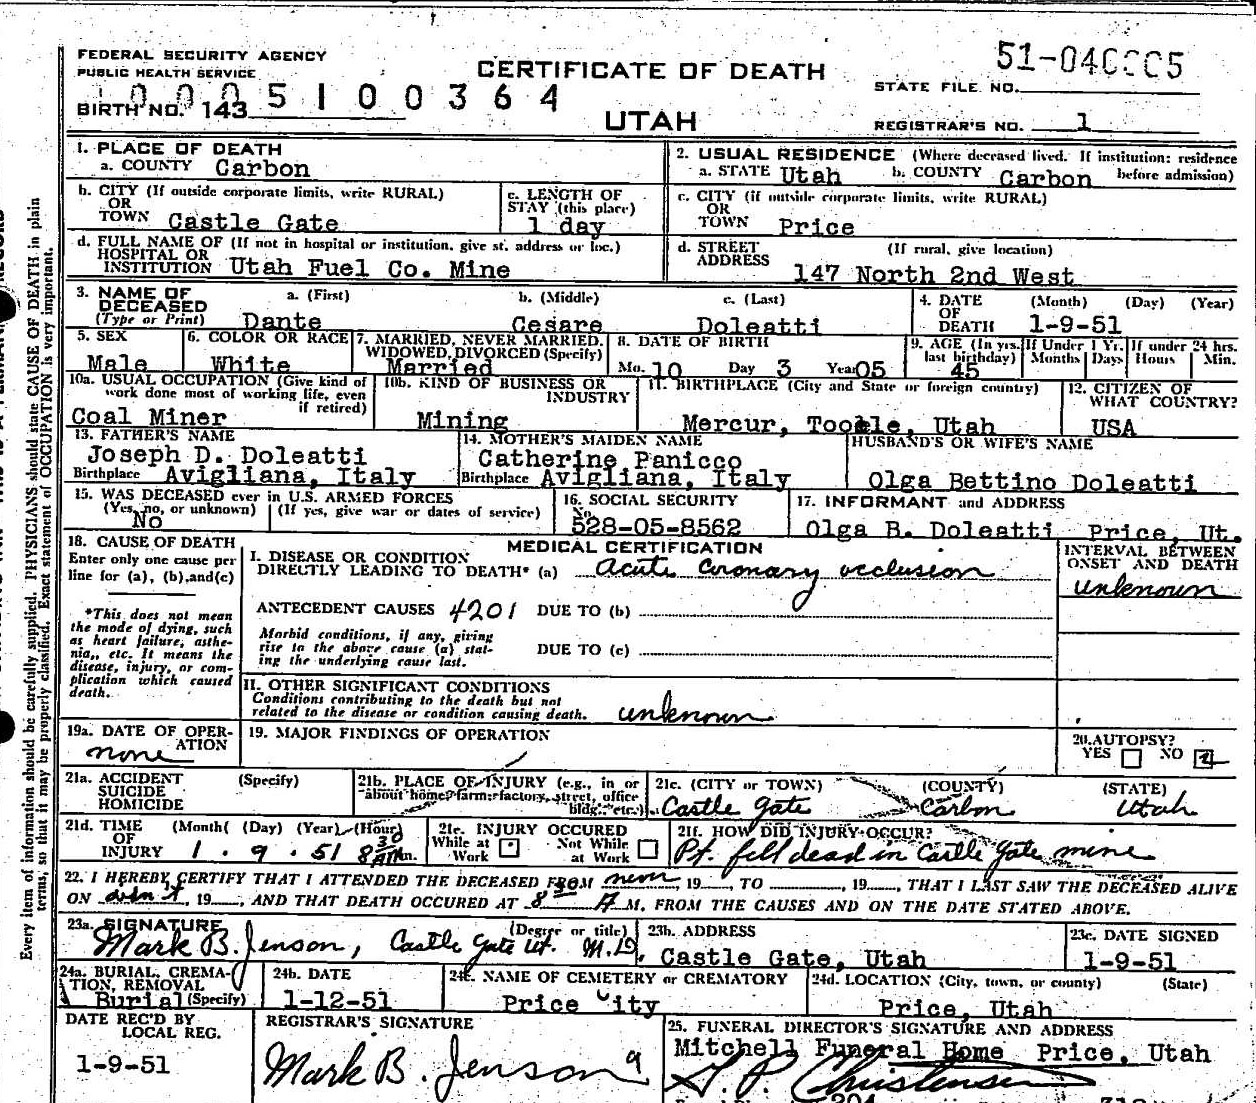 FEDERAL SECURITY AGENCY
PUBLIC HEALTH SERVICE
CERTIFICATE OF DEATH
UTAH
51-04
STATE FILE NO.
BIRTH NO. 143
0005100364
REGISTRAR'S NO. 1
1. PLACE OF DEATH
a. COUNTY Carbon
b. CITY (If outside corporate limits, write RURAL)
OR
TOWN Castle Gate
c. LENGTH OF
STAY (this place)
1 day
d. FULL NAME OF (If not in hospital or institution, give st. address or loc.)
HOSPITAL OR
INSTITUTION Utah Fuel Co. Mine
2. USUAL RESIDENCE (Where deceased lived. If institution: residence
before admission)
a. STATE Utah b. COUNTY Carbon
c. CITY (if outside corporate limits, write RURAL)
OR
TOWN Price
d. STREET (If rural, give location)
ADDRESS
147 North 2nd West
3. NAME OF
DECEASED
(Type or Print)
a. (First) b. (Middle) c. (Last)
Dante Cesare Doleatti
4. DATE (Month) (Day) (Year)
OF
DEATH 1-9-51
5. SEX
Male
6. COLOR OR RACE
White
7. MARRIED, NEVER MARRIED,
WIDOWED, DIVORCED (Specify)
Married
8. DATE OF BIRTH
Mo. 10 Day 3 Year 05
9. AGE (In yrs.
last birthday)
45
If Under 1 Yr.
Months Days
If under 24 hrs.
Hours Min.
10a. USUAL OCCUPATION (Give kind of
work done most of working life, even
if retired)
Coal Miner
10b. KIND OF BUSINESS OR
INDUSTRY
Mining
11. BIRTHPLACE (City and State or foreign country)
Mercur, Tooele, Utah
12. CITIZEN OF
WHAT COUNTRY?
USA
13. FATHER'S NAME
Joseph D. Doleatti
Birthplace Avigliana, Italy
14. MOTHER'S MAIDEN NAME
Catherine Panicco
Birthplace Avigliana, Italy
HUSBAND'S OR WIFE'S NAME
Olga Bettino Doleatti
15. WAS DECEASED ever in U.S. ARMED FORCES
(Yes, no, or unknown) (If yes, give war or dates of service)
No
16. SOCIAL SECURITY
No.
528-05-8562
17. INFORMANT and ADDRESS
Olga B. Doleatti Price, Ut.
18. CAUSE OF DEATH
Enter only one cause per
line for (a), (b), and (c)
*This does not mean
the mode of dying, such
as heart failure, asthe-
nia, etc. It means the
disease, injury, or com-
plication which caused
death.
MEDICAL CERTIFICATION
I. DISEASE OR CONDITION
DIRECTLY LEADING TO DEATH* (a) Acute Coronary occlusion
ANTECEDENT CAUSES 4201 DUE TO (b)
Morbid conditions, if any, giving
rise to the above cause (a) stat-
ing the underlying cause last.
DUE TO (c)
II. OTHER SIGNIFICANT CONDITIONS
Conditions contributing to the death but not
related to the disease or condition causing death. unknown
INTERVAL BETWEEN
ONSET AND DEATH
unknown
19a. DATE OF OPER-
ATION
none
19. MAJOR FINDINGS OF OPERATION
20. AUTOPSY?
YES NO
21a. ACCIDENT (Specify)
SUICIDE
HOMICIDE
21b. PLACE OF INJURY (e.g., in or
about home, farm, factory, street, office
bldg., etc.)
21c. (CITY or TOWN) (COUNTY) (STATE)
Castle Gate Carbon Utah
21d. TIME (Month) (Day) (Year) (Hour)
OF
INJURY 1 . 9 . 51 8 30 AM m.
21e. INJURY OCCURED
While at Work
Not While at Work
21f. HOW DID INJURY OCCUR?
Pt. fell dead in Castle Gate mine
22. I HEREBY CERTIFY THAT I ATTENDED THE DECEASED FROM never, 19 , TO , 19 , THAT I LAST SAW THE DECEASED ALIVE
ON didn't, 19 , AND THAT DEATH OCCURED AT 8 30 A M, FROM THE CAUSES AND ON THE DATE STATED ABOVE.
23a. SIGNATURE (Degree or title)
Mark B. Jenson, Castle Gate Ut. M.D.
23b. ADDRESS
Castle Gate, Utah
23c. DATE SIGNED
1-9-51
24a. BURIAL, CREMA-
TION, REMOVAL
Burial (Specify)
24b. DATE
1-12-51
24c. NAME OF CEMETERY or CREMATORY
Price City
24d. LOCATION (City, town, or county) (State)
Price, Utah
DATE REC'D BY
LOCAL REG.
1-9-51
REGISTRAR'S SIGNATURE
Mark B. Jenson
25. FUNERAL DIRECTOR'S SIGNATURE AND ADDRESS
Mitchell Funeral Home Price, Utah
Christensen
Every item of information should be carefully supplied. PHYSICIANS should state CAUSE OF DEATH in plain
terms, so that it may be properly classified. Exact statement of OCCUPATION is very important.